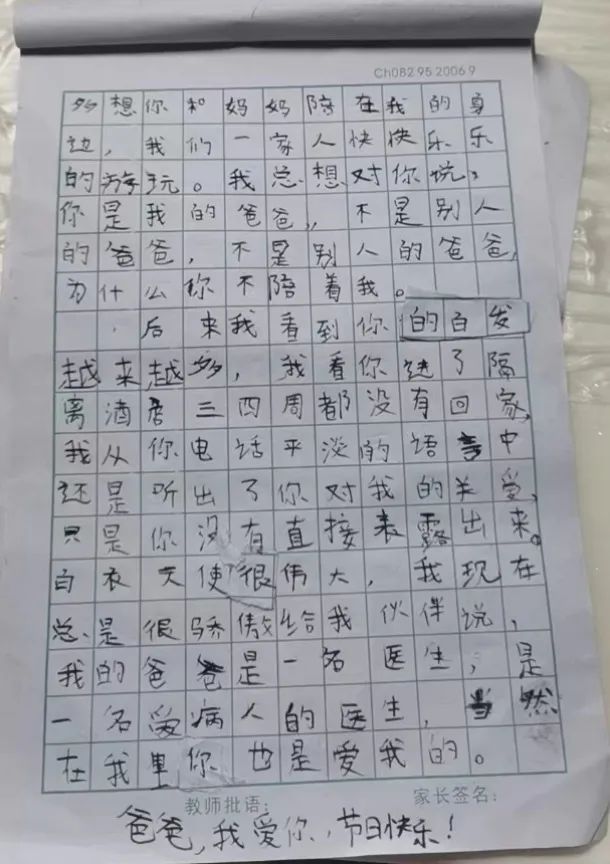 Ch082 95 2006 9
多想你和妈妈陪在我的身
边，我们一家人快快乐乐
的游玩。我总想对你说：
你是我的爸爸，，不是别人
的爸爸，不是别人的爸爸，
为什么你不陪着我。
后来我看到你的白发
越来越多，我看你进了隔
离酒店三四周都没有回家，
我从你电话平淡的语言中
还是听出了你对我的关爱，
只是你没有直接表露出来。
白衣天使很伟大，我现在
总是很骄傲给我伙伴说，
我的爸爸是一名医生，是
一名爱病人的医生，当然
在我里你也是爱我的。
教师批语： 家长签名：
爸爸，我爱你，节日快乐！